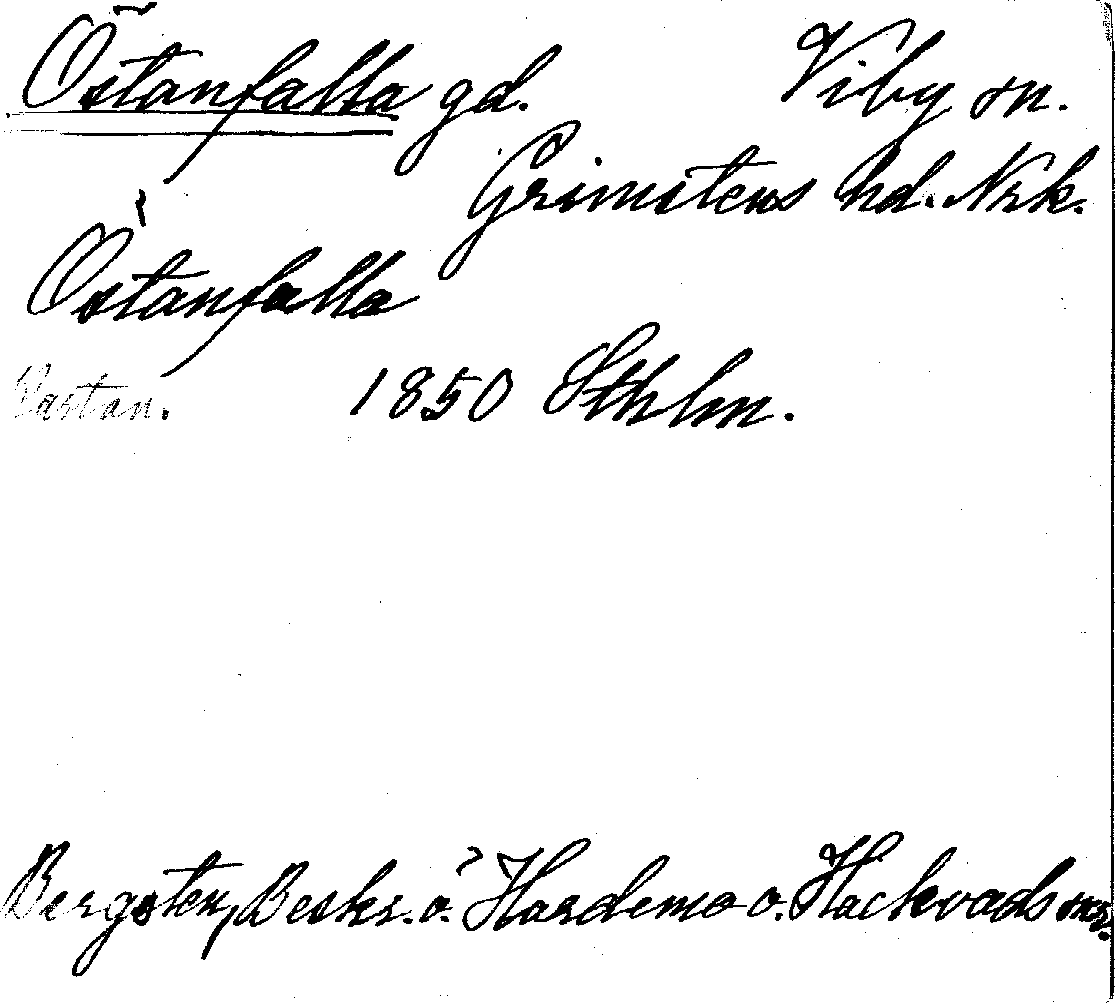 Östanfalla gd. Viby sn.
Grimstens hd. Nrk.
Östanfalla
Västan. 1850 Sthlm.
Bergsten, Beskr. ö. Hardemo o. Hackvads snr.